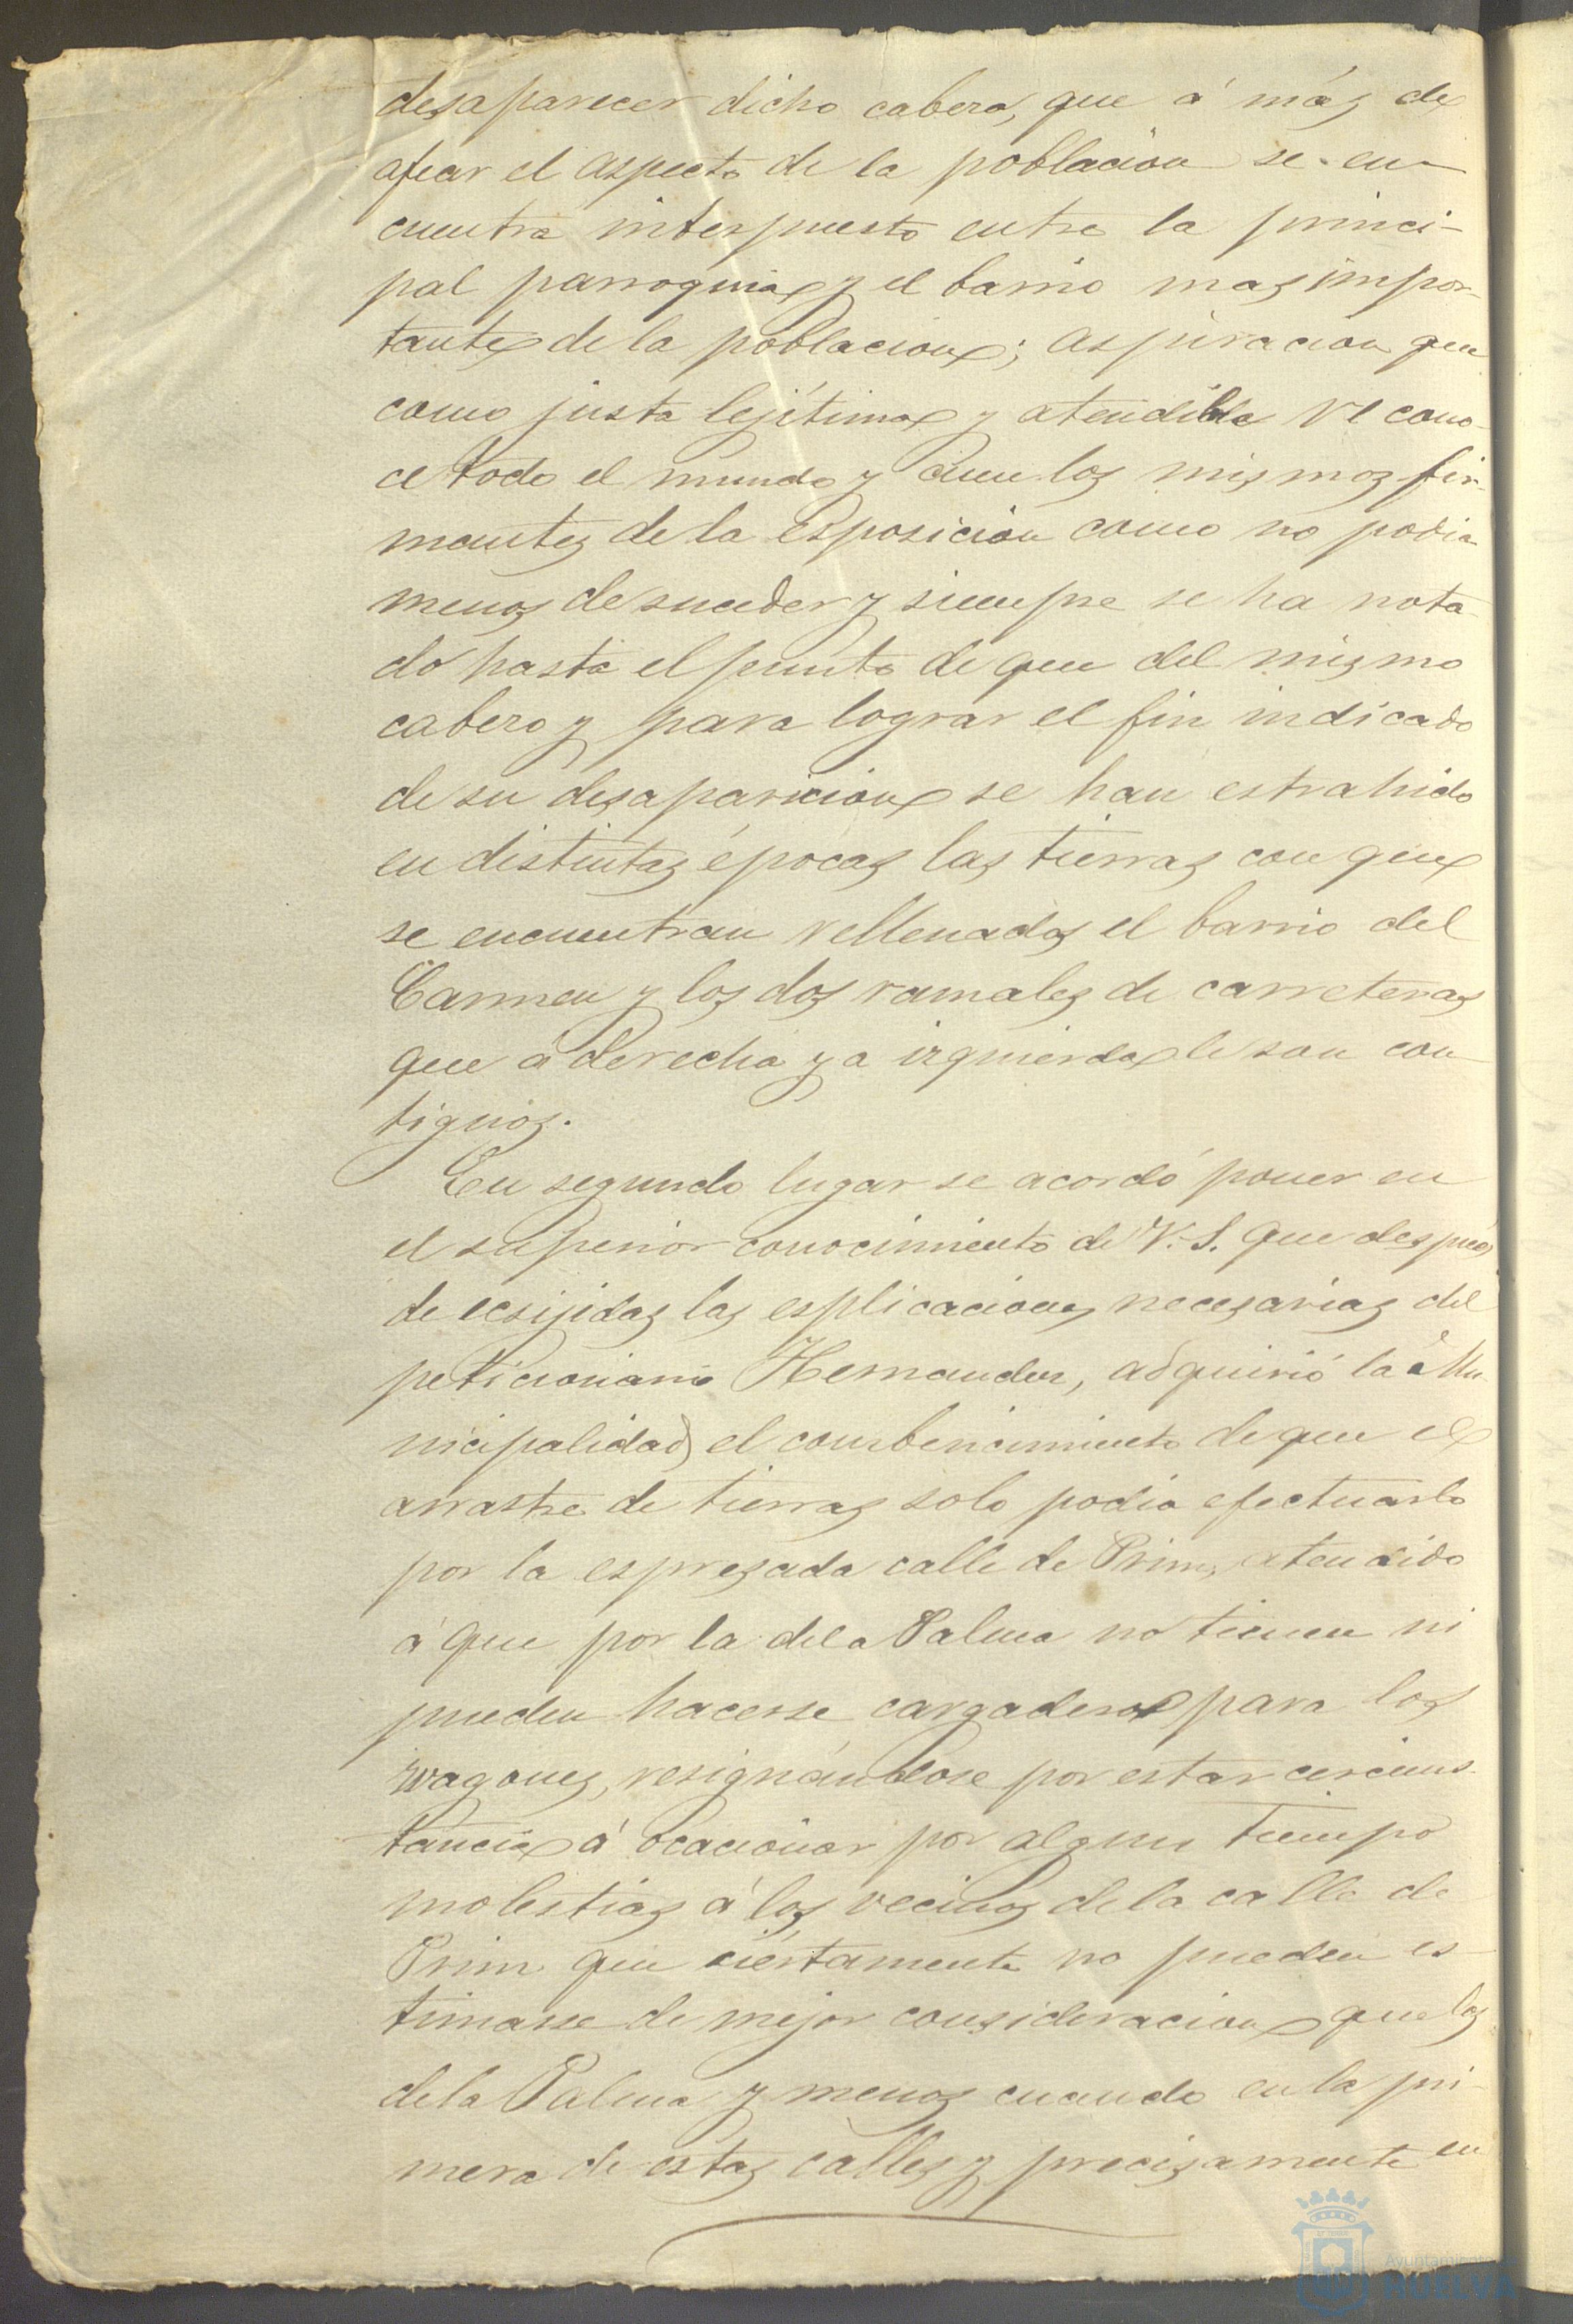 desaparecer dicho cabezo, que á más de
afear el aspecto de la población se en-
cuentra interpuesto entre la princi-
pal parroquia y el barrio mas impor-
tante de la poblacion; aspiracion que
como justa lejítima y atendible reCono-
ce todo el mundo y aun los mismos fir-
mantes de la esposición como no podia
menos de suceder y siempre se ha nota
do hasta el punto de que del mismo
cabezo y para lograr el fin indicado
de su desaparicion se han estrahido
en distintas épocas las tierras con que
se encuentran rellenados el barrio del
Carmen y los dos ramales de carreteras
que á derecha y a izquierda le son con
tiguos.
En segundo lugar se acordó poner en
el superior conocimiento de V. S. que después
de ecsijidas las esplicaciones necesarias del
peticionario Hernandez, adquirió la Mu
nicipalidad el conbencimiento de que el
arrastre de tierras solo podia efectuarlo
por la espresada calle de Prim, atendido
á que por la de la Palma no tienen ni
pueden hacerse cargaderos para los
wagones, resignándose por estar circuns-
tancia á ocacionar por algun tiempo
molestias á los vecinos de la calle de
Prim que ciertamente no pueden es-
timarse de mejor consideracion que los
de la Palma y menos cuando en la pri-
mera de estas calles y precisamente en
Ayuntamiento de
HUELVA